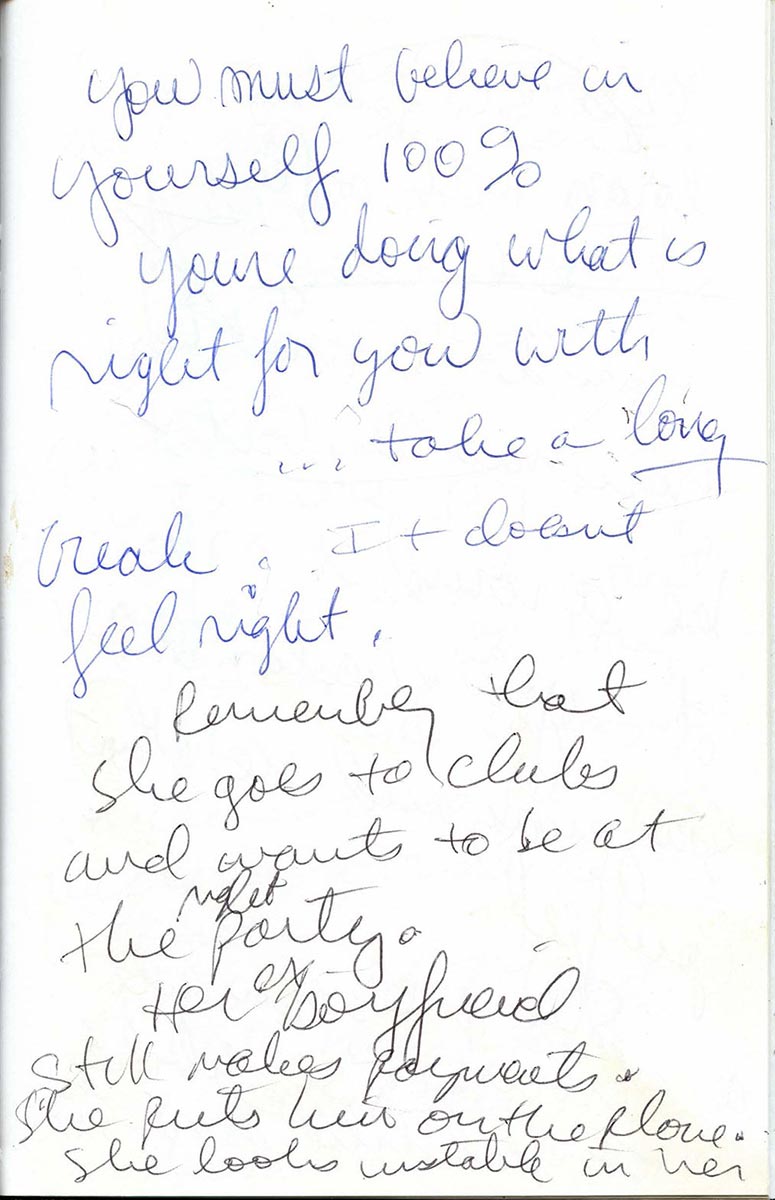 you must believe in
yourself 100%
you're doing what is
right for you with
... take a long
break. It doesn't
feel right.
Remember that
she goes to clubs
and wants to be at
the right party.
Her ex boyfriend
still makes payments.
She puts him on the phone.
She looks unstable in her